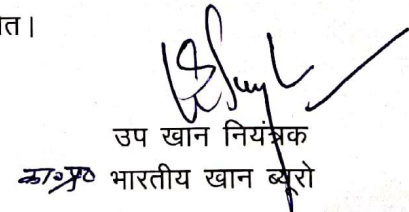 त।
उप खान नियंत्रक
भारतीय खान ब्यूरो